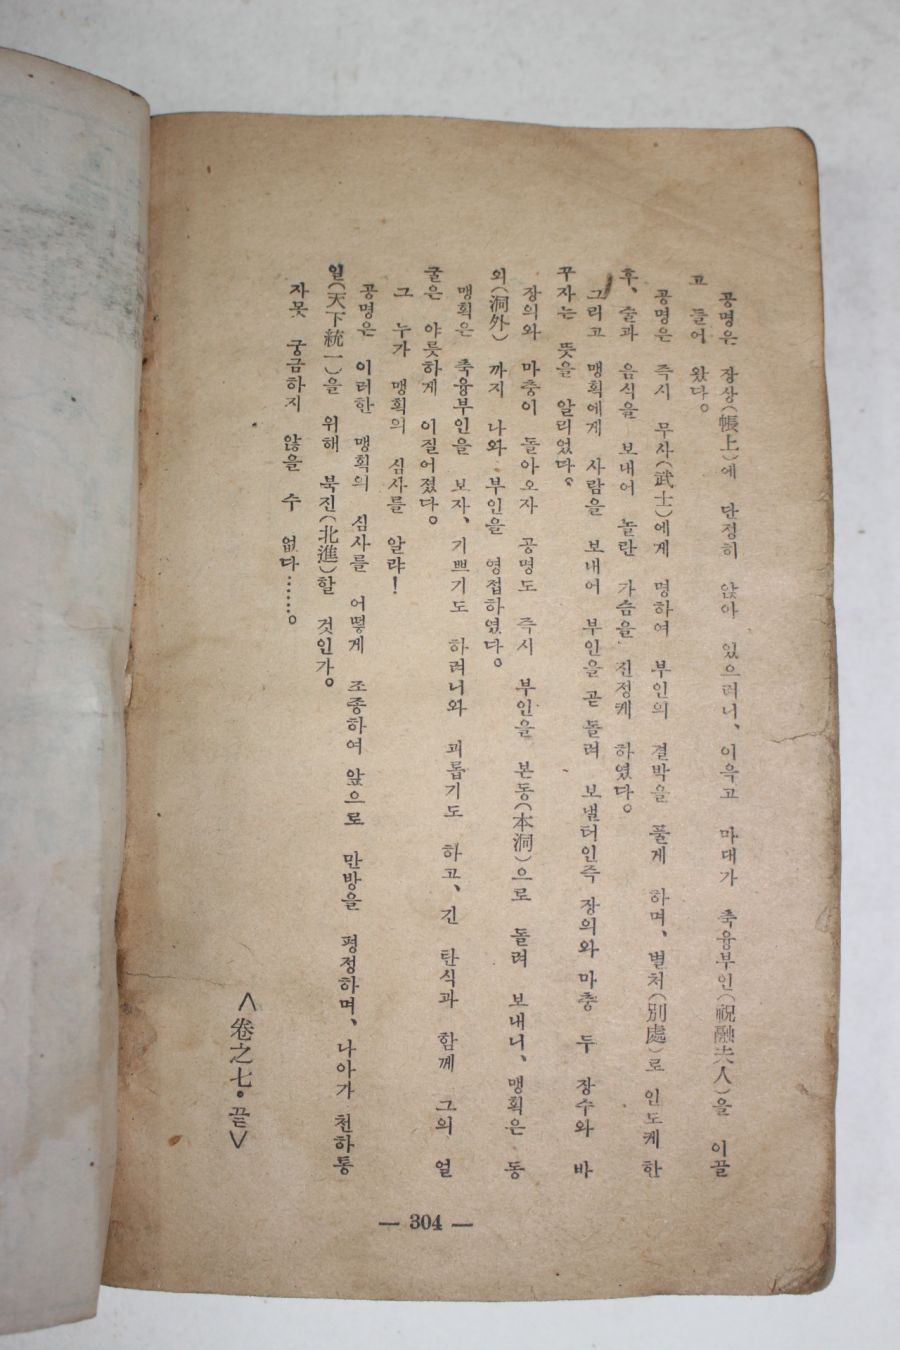 공명은 장상(帳上)에 단정히 앉아 있으려니, 이윽고 마대가 축융부인(祝融夫人)을 이끌
고 들어 왔다。
공명은 즉시 무사(武士)에게 명하여 부인의 결박을 풀게 하며, 별처(別處)로 인도케 한
후, 술과 음식을 보내어 놀란 가슴을 진정케 하였다。
그리고 맹획에게 사람을 보내어 부인을 곧 돌려 보낼터인즉 장의와 마충 두 장수와 바
꾸자는 뜻을 알리었다。
장의와 마충이 돌아오자 공명도 즉시 부인을 본동(本洞)으로 돌려 보내니, 맹획은 동
외(洞外) 까지 나와 부인을 영접하였다。
맹획은 축융부인을 보자, 기쁘기도 하려니와 괴롭기도 하고, 긴 탄식과 함께 그의 얼
굴은 야릇하게 이질어졌다。
그 누가 맹획의 심사를 알랴!
공명은 이러한 맹획의 심사를 어떻게 조종하여 앞으로 만방을 평정하며, 나아가 천하통
일(天下統一)을 위해 북진(北進)할 것인가。
자못 궁금하지 않을 수 없다……。
<卷之七·끝>
— 304 —